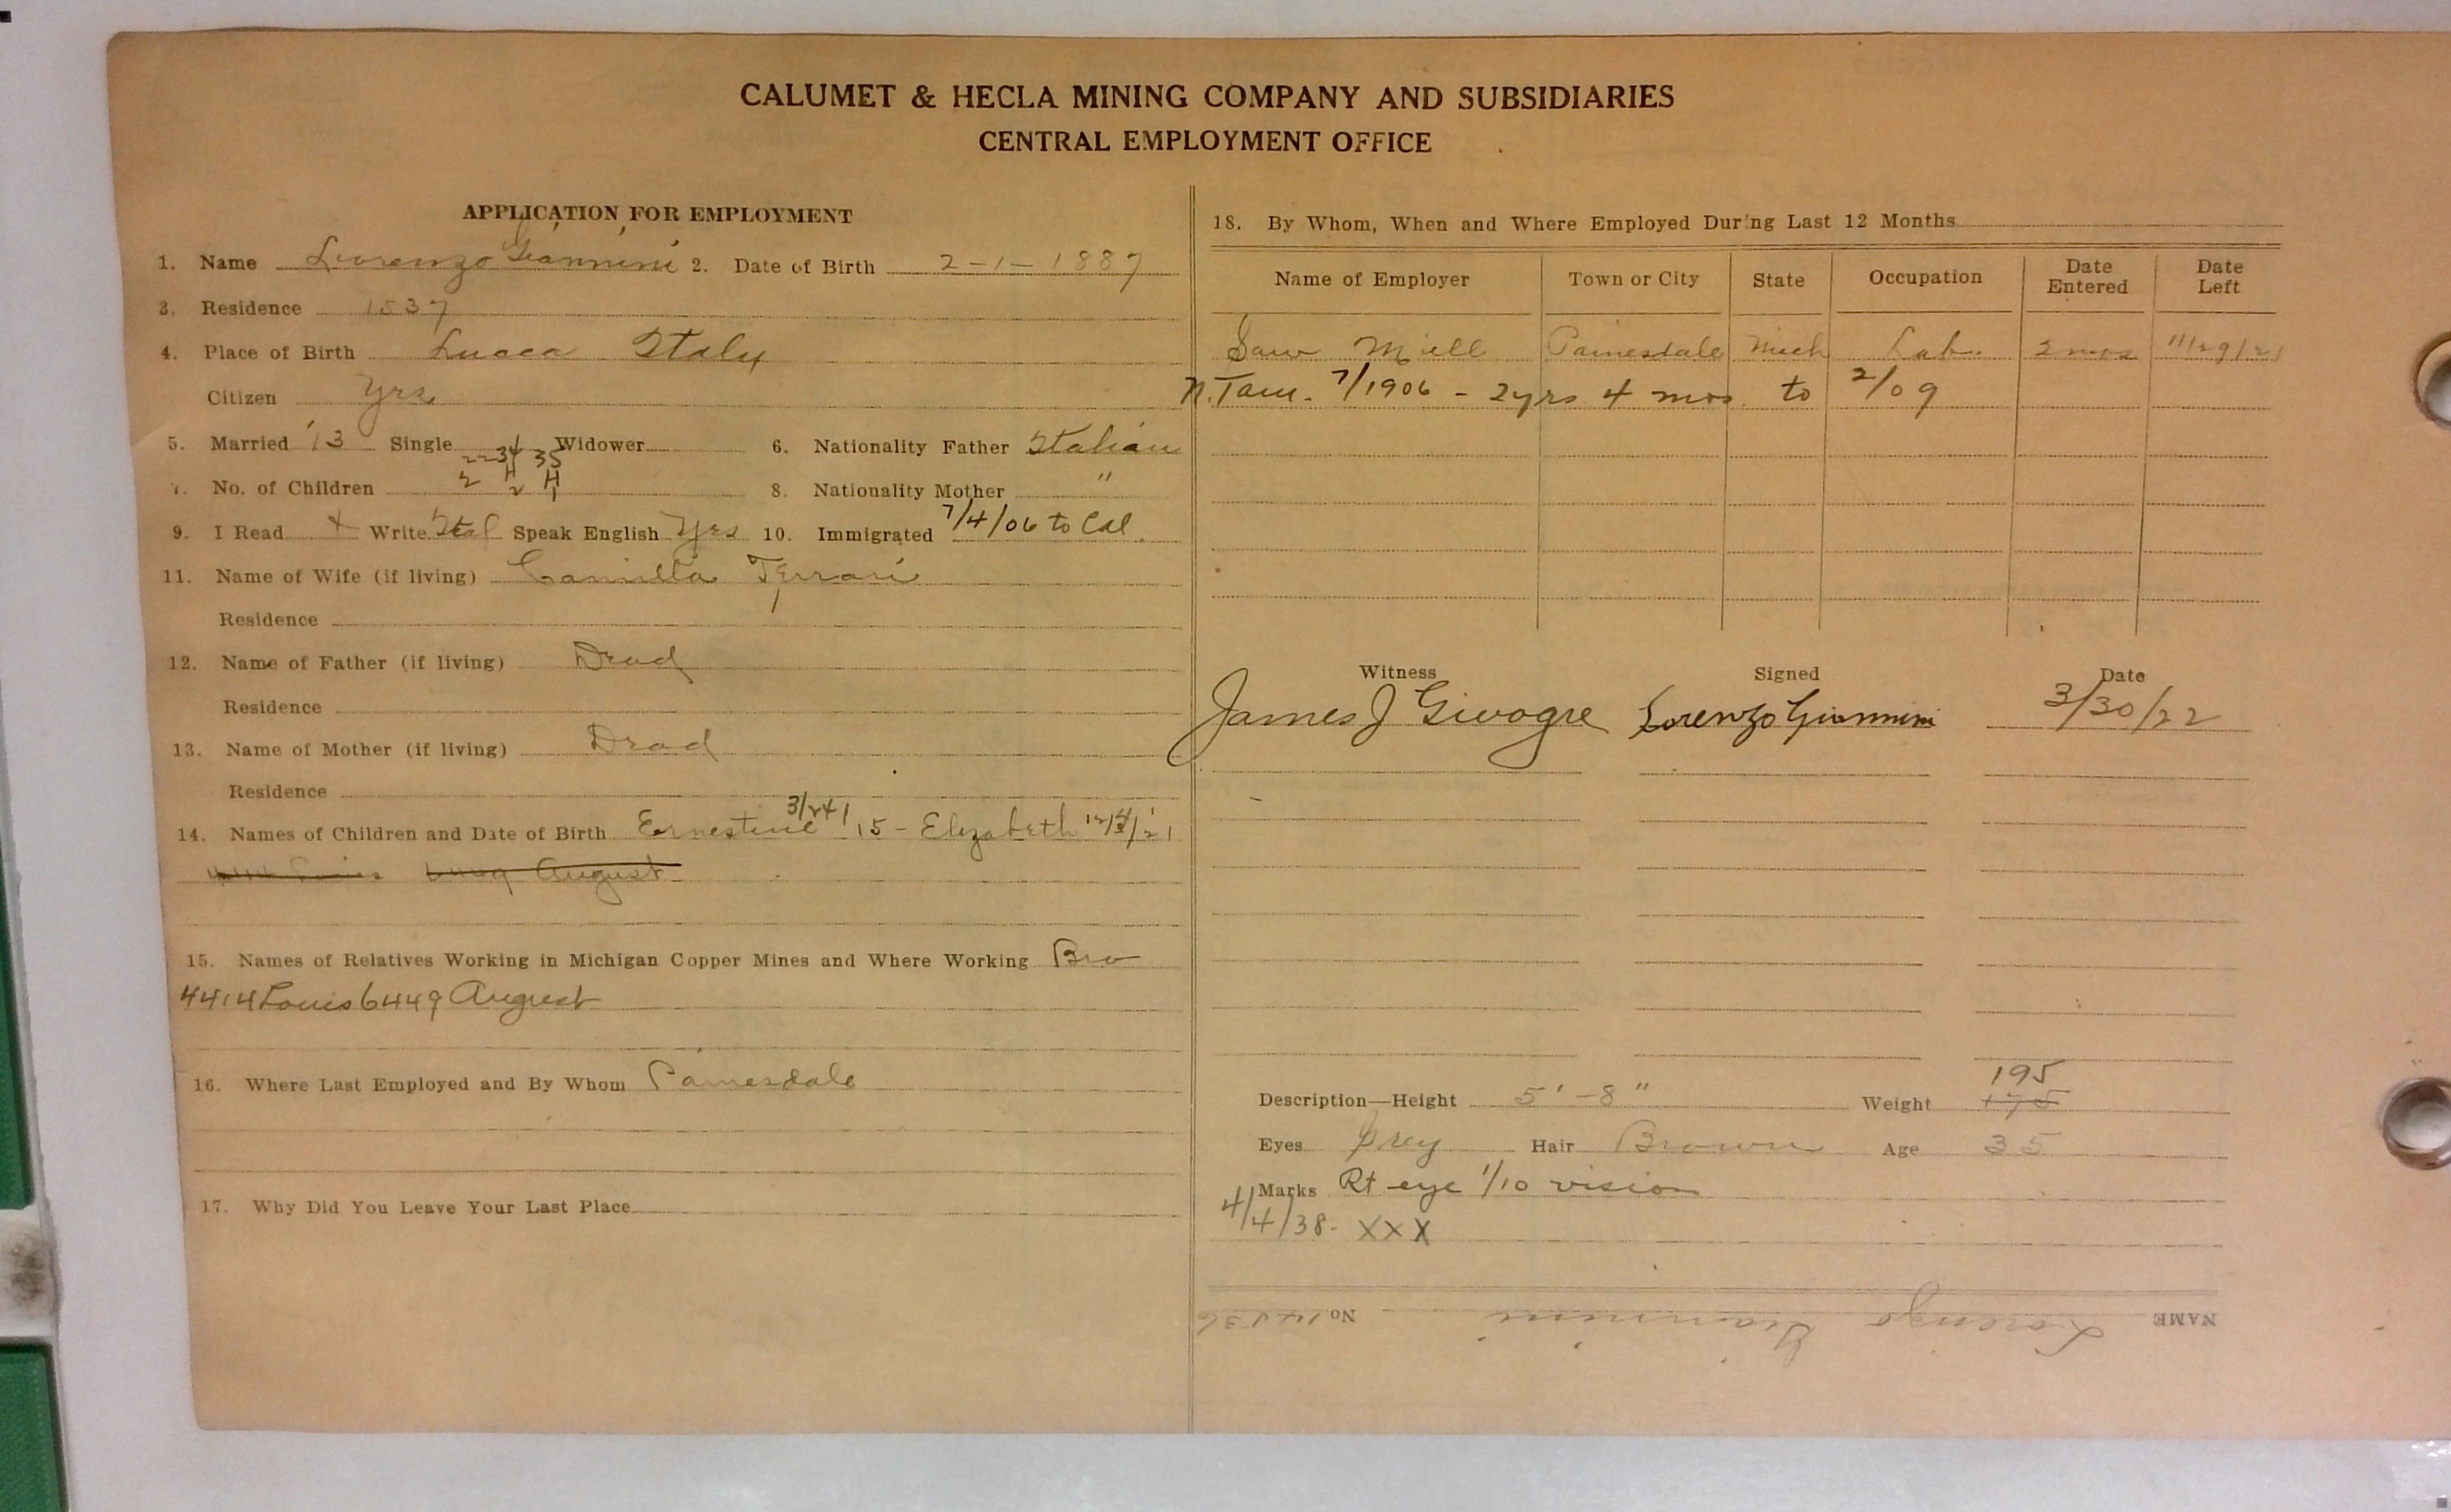 CALUMET & HECLA MINING COMPANY AND SUBSIDIARIES
CENTRAL EMPLOYMENT OFFICE
APPLICATION FOR EMPLOYMENT
1. Name Lorenzo Giannini 2. Date of Birth 2-1-1887
3. Residence 1537
4. Place of Birth Lucca Italy
Citizen Yes
5. Married 13 Single Widower 6. Nationality Father Italian
22 34 35
7. No. of Children 2 H 2 H 1 8. Nationality Mother "
9. I Read + Write Ital Speak English Yes 10. Immigrated 7/4/06 to Cal.
11. Name of Wife (if living) Camilla Ferrari
Residence
12. Name of Father (if living) Dead
Residence
13. Name of Mother (if living) Dead
Residence
14. Names of Children and Date of Birth Ernestine 3/24/15 - Elizabeth
6449 August
15. Names of Relatives Working in Michigan Copper Mines and Where Working Bro
4414 Louis 6449 August
16. Where Last Employed and By Whom Painesdale
17. Why Did You Leave Your Last Place
18. By Whom, When and Where Employed During Last 12 Months
Name of Employer Town or City State Occupation Date Entered Date Left
Saw Mill Painesdale Mich Lab. 2 mos 11/29/21
N. Tam. 7/1906 - 2yrs 4 mos to 2/09
Witness Signed Date
James J Givogre Lorenzo Giannini 3/30/22
195
Description—Height 5'-8" Weight 175
Eyes Grey Hair Brown Age 35
Marks Rt eye 1/10 vision
4/4/38- XXX
NAME Lorenzo Giannini No 14536